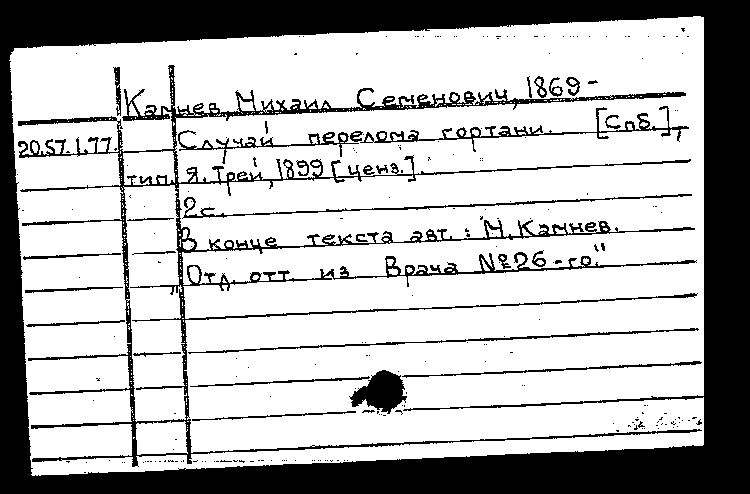 Камнев, Михаил Семенович, 1869 -
20.57.1.77. Случай перелома гортани. [Спб.],
тип. Я. Трей, 1899 [ценз.].
2с.
В конце текста авт.: М. Камнев.
„Отд. отт. из Врача № 26 - го."